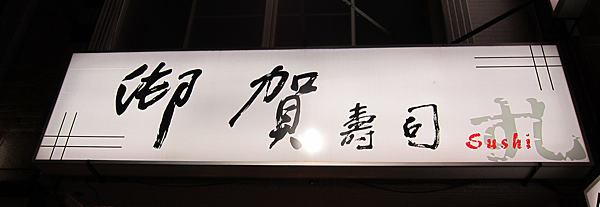 御賀壽司 Sushi